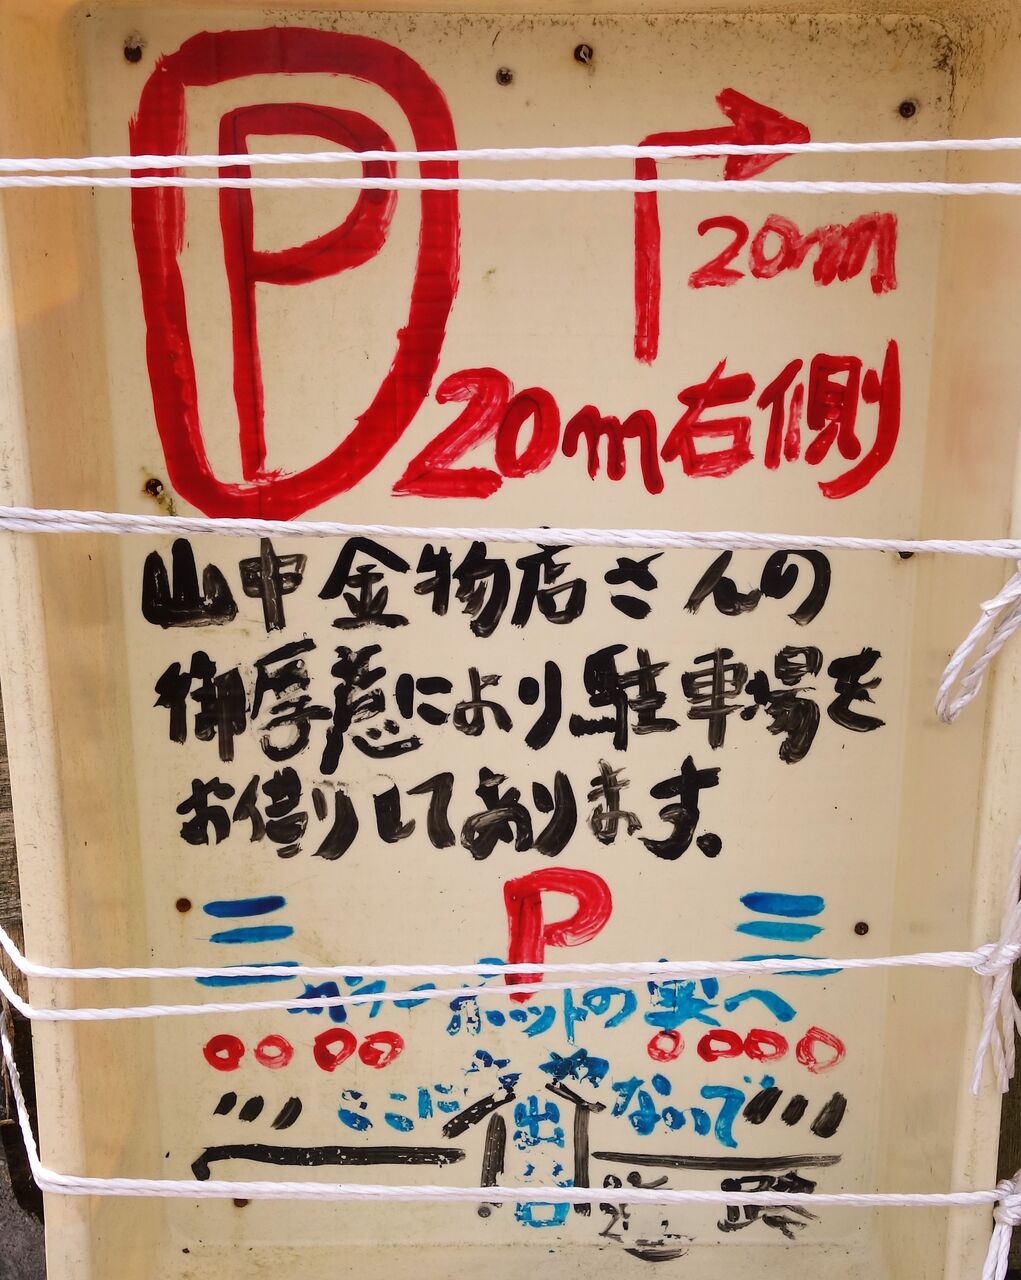 P
20m
20m右側
山中金物店さんの
御厚意により駐車場を
お借りしてあります。
P
の奥へ
ここに
ないで
出
路